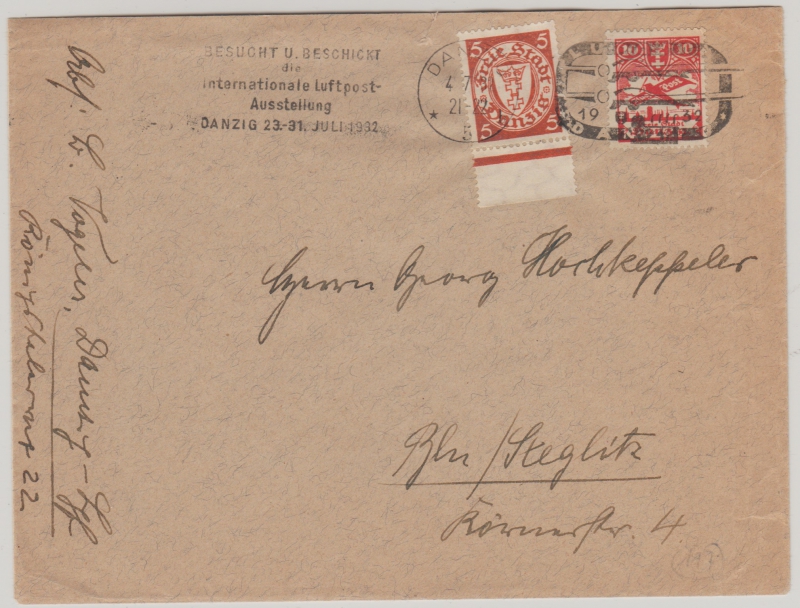 BESUCHT U. BESCHICKT
die
Internationale Luftpost-
Ausstellung
DANZIG 23.-31. JULI 1932
DAN
4.7
21-22
* 5
5 5
Freie Stadt
Danzig
5 5
10 10
Post
19 32
Herrn Georg Hochkeppeler
Bln/Steglitz
Körnerstr. 4
Abs. L. Vogeler, Danzig-Lgf
22